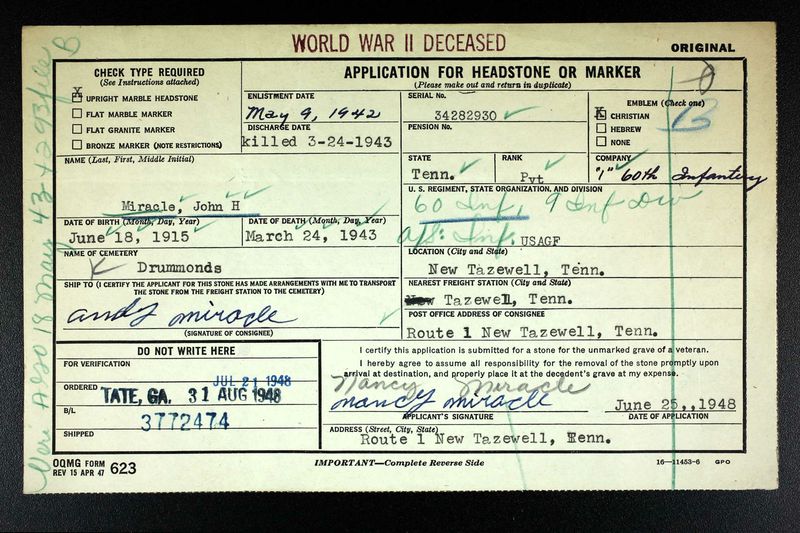 WORLD WAR II DECEASED
ORIGINAL
CHECK TYPE REQUIRED
(See Instructions attached)
X UPRIGHT MARBLE HEADSTONE
FLAT MARBLE MARKER
FLAT GRANITE MARKER
BRONZE MARKER (NOTE RESTRICTIONS)
APPLICATION FOR HEADSTONE OR MARKER
(Please make out and return in duplicate)
ENLISTMENT DATE
May 9, 1942
DISCHARGE DATE
killed 3-24-1943
SERIAL No.
34282930
PENSION No.
EMBLEM (Check one)
X CHRISTIAN
HEBREW
NONE
B
NAME (Last, First, Middle Initial)
Miracle, John H
STATE
Tenn.
RANK
Pvt
COMPANY
"I" 60th Infantery
U. S. REGIMENT, STATE ORGANIZATION, AND DIVISION
60 Inf, 9 Inf Div
A/S: Inf. USAGF
DATE OF BIRTH (Month, Day, Year)
June 18, 1915
DATE OF DEATH (Month, Day, Year)
March 24, 1943
NAME OF CEMETERY
Drummonds
LOCATION (City and State)
New Tazewell, Tenn.
SHIP TO (I CERTIFY THE APPLICANT FOR THIS STONE HAS MADE ARRANGEMENTS WITH ME TO TRANSPORT
THE STONE FROM THE FREIGHT STATION TO THE CEMETERY)
andy miracle
(SIGNATURE OF CONSIGNEE)
NEAREST FREIGHT STATION (City and State)
New Tazewell, Tenn.
POST OFFICE ADDRESS OF CONSIGNEE
Route 1 New Tazewell, Tenn.
DO NOT WRITE HERE
FOR VERIFICATION
JUL 21 1948
ORDERED
TATE, GA. 31 AUG 1948
B/L
3772474
SHIPPED
I certify this application is submitted for a stone for the unmarked grave of a veteran.
I hereby agree to assume all responsibility for the removal of the stone promptly upon
arrival at destination, and properly place it at the decedent's grave at my expense.
Nancy Miracle
nancy miracle
June 25,,1948
APPLICANT'S SIGNATURE
DATE OF APPLICATION
ADDRESS (Street, City, State)
Route 1 New Tazewell, Tenn.
OQMG FORM
REV 15 APR 47 623
IMPORTANT—Complete Reverse Side
16—11453-6 GPO